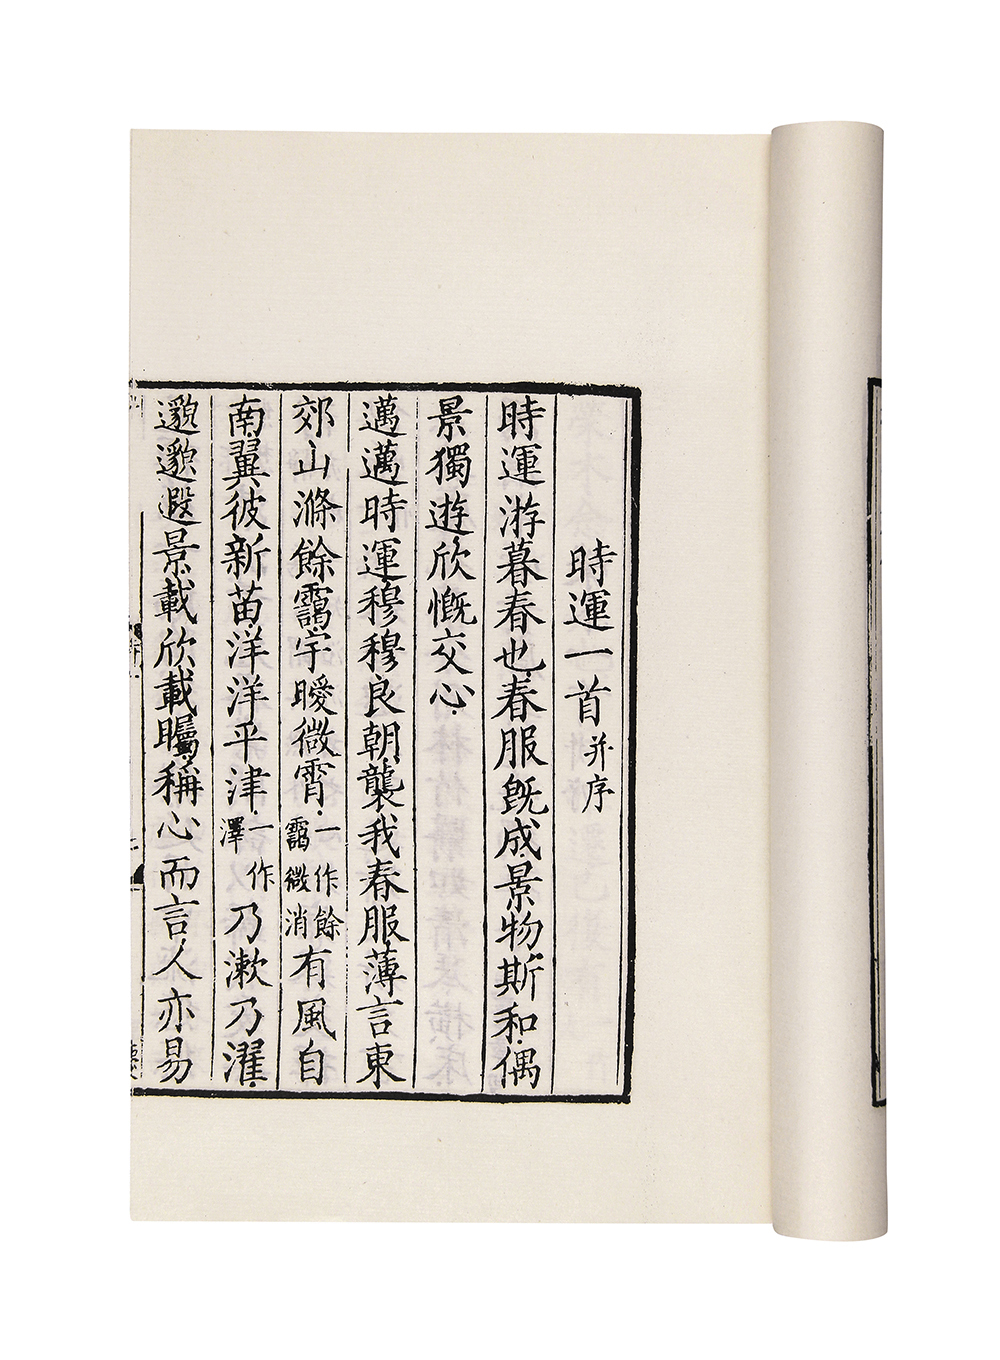 時運一首并序
時運游暮春也春服旣成景物斯和偶
景獨遊欣慨交心
邁邁時運穆穆良朝襲我春服薄言東
郊山滌餘靄宇曖微霄一作餘靄微消有風自
南翼彼新苗洋洋平津一作澤乃漱乃濯
邈邈遐景載欣載矚稱心而言人亦易